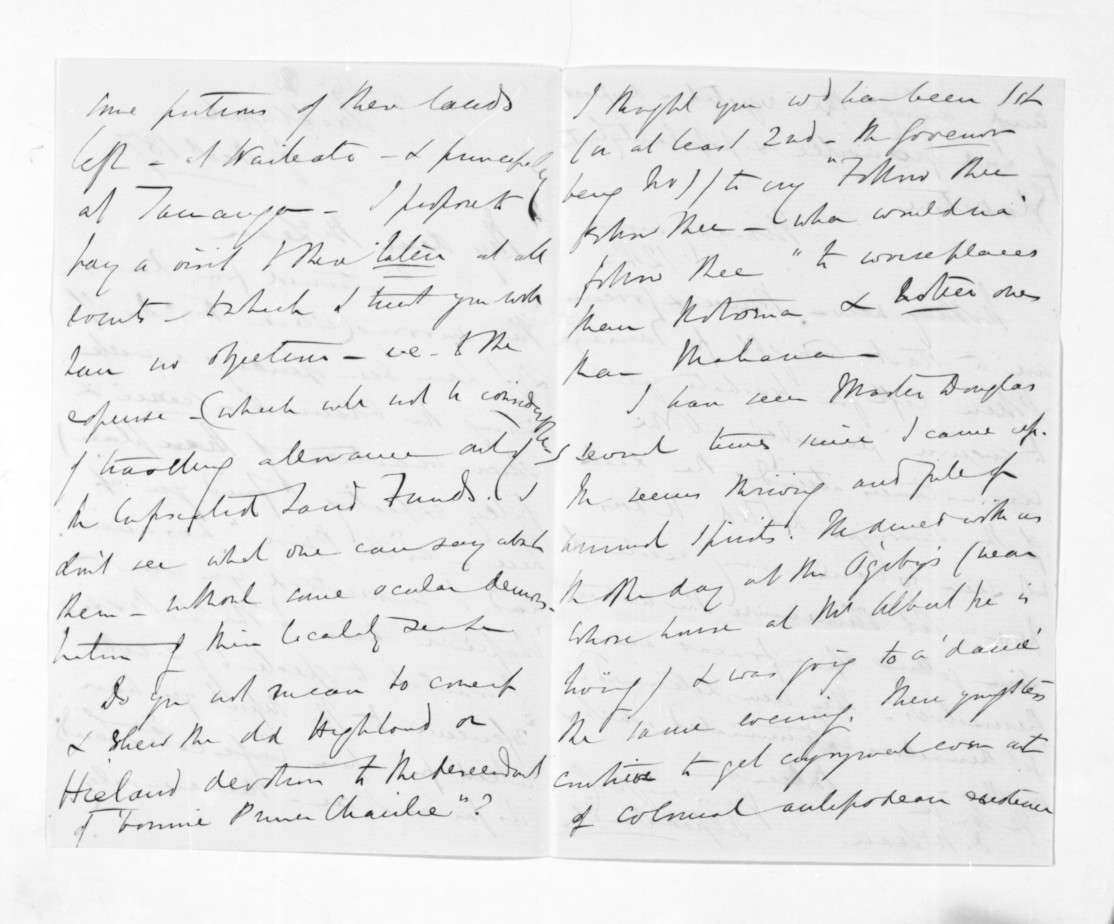 some portions of these lands
left - at Waikato - & principally
at Tauranga - I propose to
pay a visit to these latter at all
events - to which I trust you will
have no objection - i.e. to the
expense - (which will not be considerable)
of travelling allowance out of
the Confiscated Land Funds. I
don't see what one can say about
them - without some ocular demons-
tration of their locality &
Do you not mean to come up
& shew the old Highland or
Hieland devotion to the descendant
of "bonnie Prince Chairlie"?
I thought you wd have been 1st
(or at least 2nd - the Governor
being No 1) to cry "Follow thee
follow thee - wha wouldna'
follow thee" to worse places
than Rotorua & hotter ones
than Mahana -
I have seen Master Douglas
several times since I came up.
He seems thriving and full of
animal spirits. He dined with us
the other day at the Ogilby's (near
whose house at Mt Albert he is
living) & was going to a 'dance'
the same evening. These youngsters
contrive to get enjoyment even out
of colonial antipodean existence